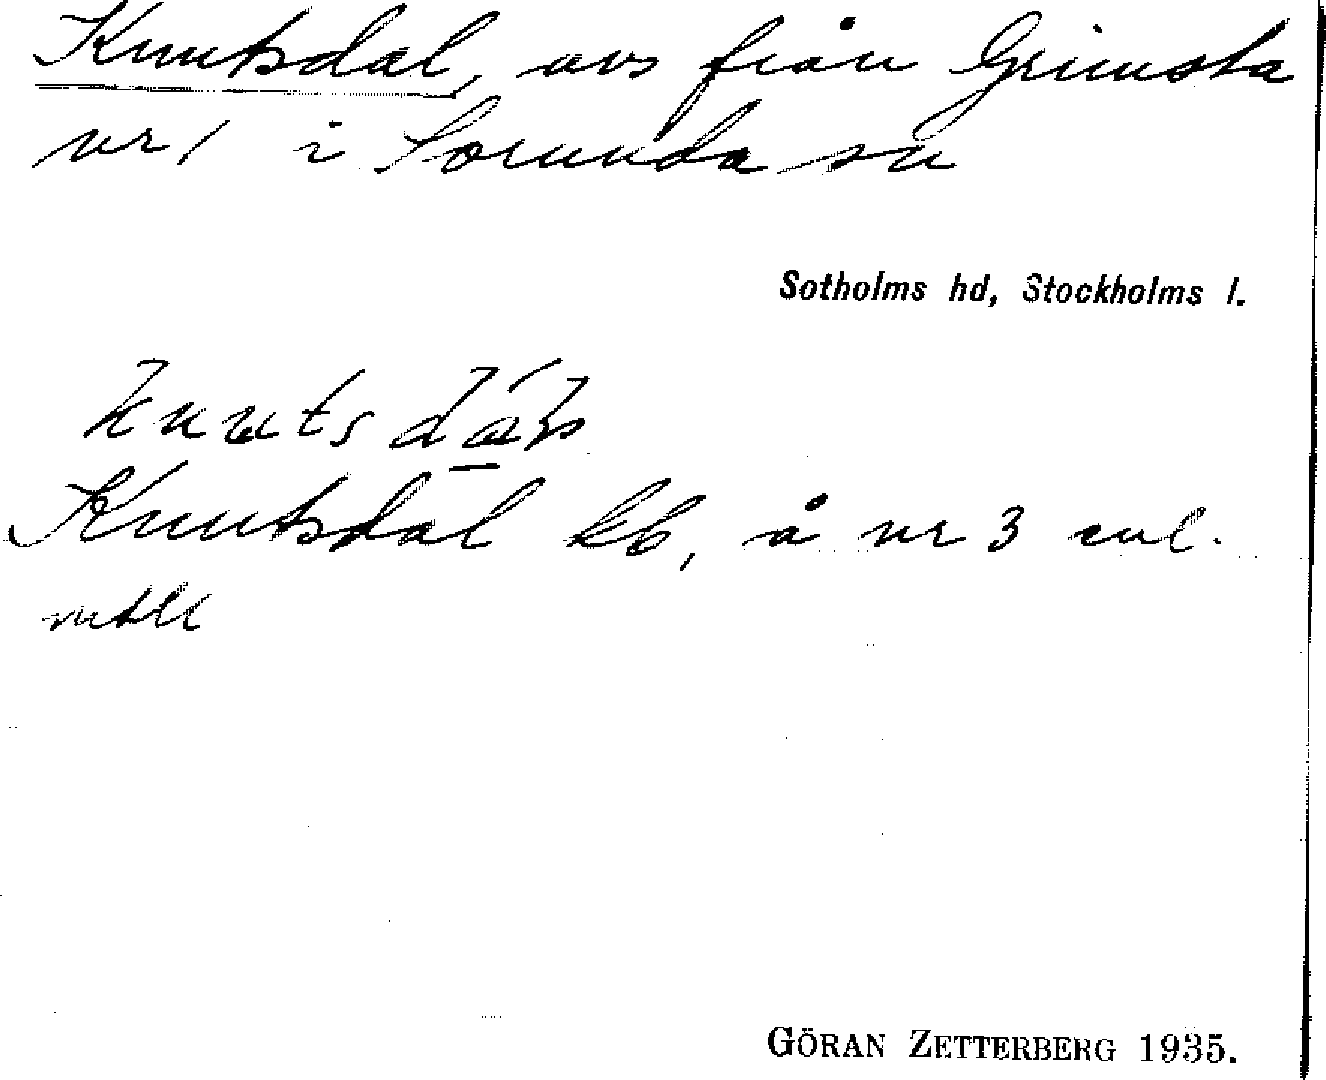 Knutsdal, avs från Grimsta
nr 1 i Sorunda sn
Sotholms hd, Stockholms l.
knuts dál
Knutsdal kb, å nr 3 enl.
mtll
GÖRAN ZETTERBERG 1935.